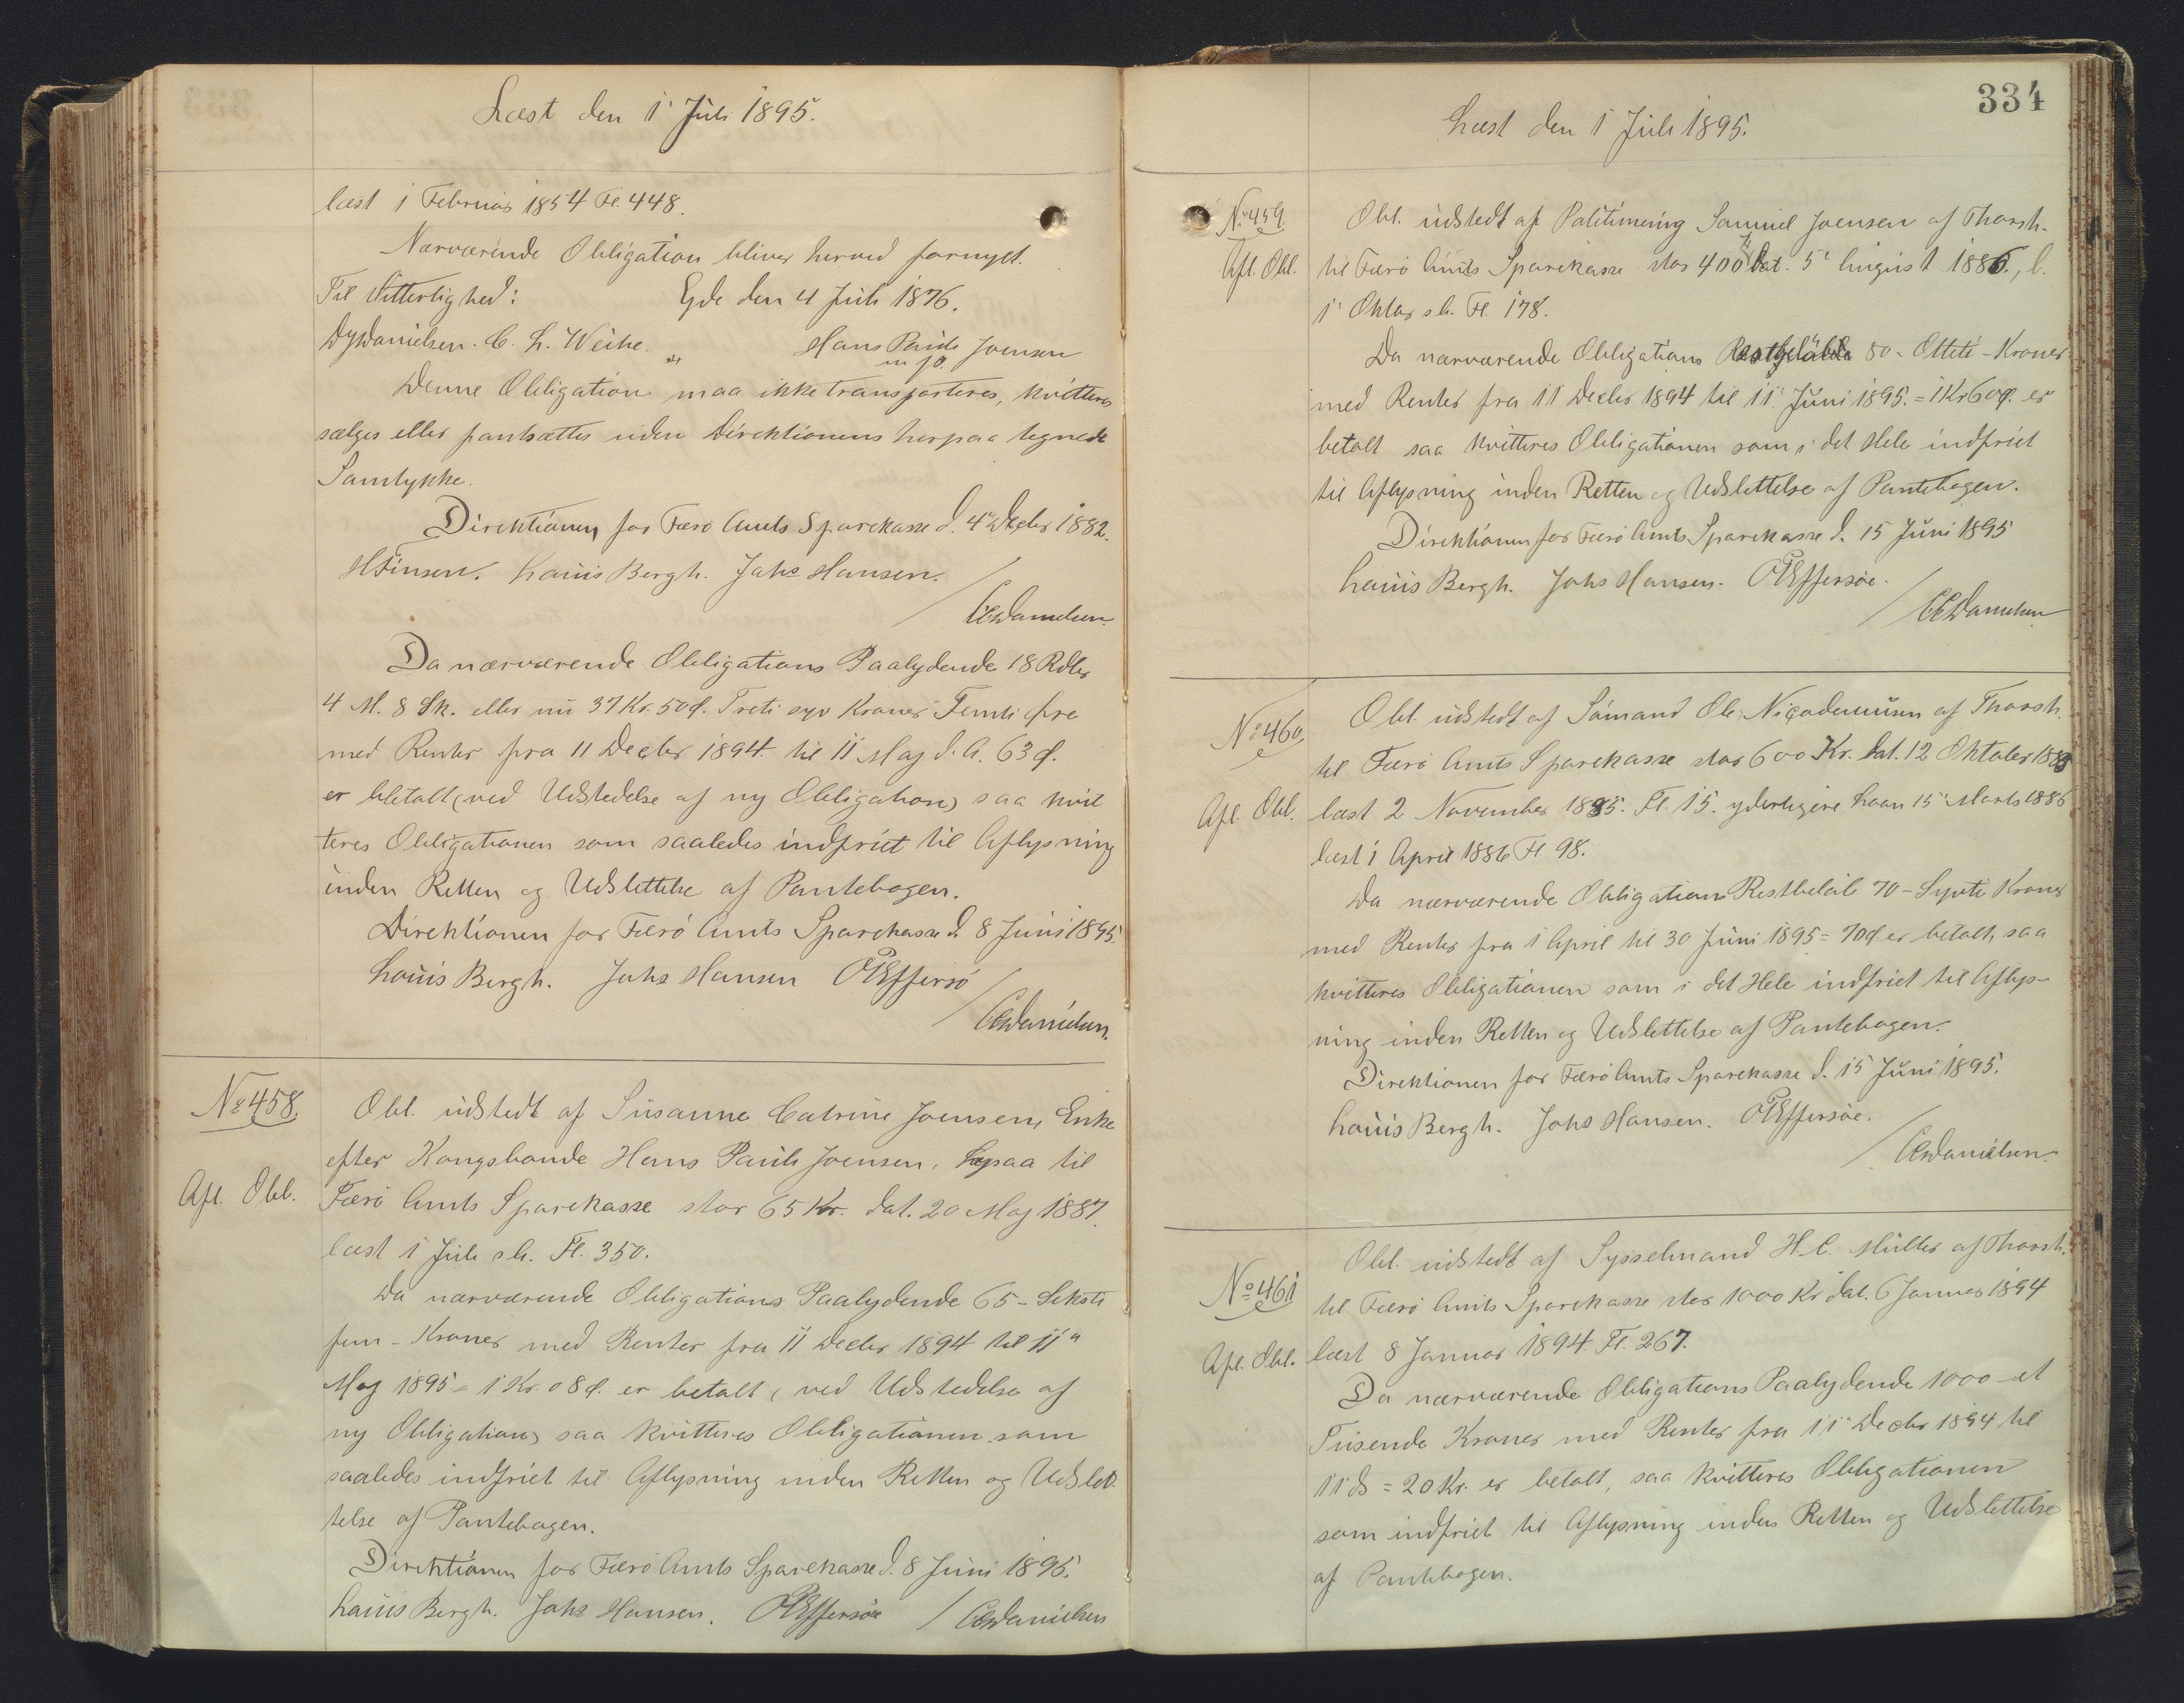 Læst den 1' Juli 1895.
læst 1 Februar 1854 Fl. 448.
Nærværende Obligation bliver herved fornyet.
Til Vitterlighed: Ejde den 4 Juli 1876.
DJDanielsen. C. L. Weihe. Hans Pauli Joensen
m f P.
Denne Obligation maa ikke transporteres, kvitteres
sælges eller pantsættes uden Direktionens herpaa tegnede
Samtykke.
Direktionen for Færø Amts Sparekasse d. 4 Decbr 1882.
HFinsen. Louis Bergh. Johs Hansen.
/CCDanielsen
Da nærværende Obligations Paalydende 18 Rdlr
4 M. 8 Sk. eller nu 37 Kr. 50 Ø. Treti syv Kroner Femti Øre
med Renter fra 11 Decbr 1894 til 11 Maj d. A. 63 Ø.
er betalt (ved Udstedelse af ny Obligation) saa kvit
teres Obligationen som saaledes indfriet til Aflysning
inden Retten og Udslettelse af Pantebogen.
Direktionen for Færö Amts Sparekasse d. 8 Juni 1895.
Louis Bergh. Johs Hansen OEffersö
/CCDanielsen.
No 458. Obl. udstedt af Susanne Catrine Joensen, Enke
efter Kongsbonde Hans Pauli Joensen, til
Afl. Obl. Færö Amts Sparekasse stor 65 Kr. dat. 20 Maj 1887.
læst 1 Juli s. A. Fl. 350.
Da nærværende Obligations Paalydende 65 - Seksti
fem - Kroner med Renter fra 11 Decbr 1894 til 11"
Maj 1895 = 1 Kr. 08 Ø. er betalt (ved Udstedelse af
ny Obligation) saa kvitteres Obligationen som
saaledes indfriet til Aflysning inden Retten og Udslet-
telse af Pantebogen.
Direktionen for Færö Amts Sparekasse d. 8 Juni 1895.
Louis Bergh. Johs Hansen. OEffersöe /CCDanielsen
334
Læst den 1 Juli 1895.
No 459. Obl. udstedt af Politimening Samuel Joensen af Thorsh.
Afl. Obl. til Færö Amts Sparekasse stor 400 Kr dat. 5' August 1886., l.
1' Oktbr s. A. Fl. 178.
Da nærværende Obligations Restbelöb 80 - Otteti - Kroner
med Renter fra 11 Decbr 1894 til 11 Juni 1895. = 1 Kr 60 Ø. er
betalt saa kvitteres Obligationen som i det Hele indfriet
til Aflysning inden Retten og Udslettelse af Pantebogen.
Direktionen for Færö Amts Sparekasse d. 15 Juni 1895
Louis Bergh. Johs Hansen. OEffersöe.
/CCDanielsen
No 460. Obl. udstedt af Sömand Ole Nicodemusen af Thorsh.
til Færö Amts Sparekasse stor 600 Kr. dat. 12 Oktober 1885
Afl. Obl. læst 2 November 1885. Fl. 15. yderligere Laan 15' Marts 1886
læst 1 April 1886 Fl 98.
Da nærværende Obligations Restbelöb 70 - Syvti Kroner
med Renter fra 1 April til 30 Juni 1895 = 70 Ø. er betalt, saa
kvitteres Obligationen som i det Hele indfriet til Aflys-
ning inden Retten og Udslettelse af Pantebogen.
Direktionen for Færö Amts Sparekasse d. 15 Juni 1895.
Louis Bergh. Johs Hansen. OEffersöe.
/CCDanielsen.
No 461 Obl. udstedt af Sysselmand H. C. Müller af Thorsh.
til Færö Amts Sparekasse stor 1000 Kr dat. 6 Januar 1894
Afl. Obl. læst 8 Januar 1894. Fl. 267.
Da nærværende Obligations Paalydende 1000 - et
Tusende Kroner med Renter fra 11' Decbr 1894 til
11 ds = 20 Kr. er betalt, saa kvitteres Obligationen
som indfriet til Aflysning inden Retten og Udslettelse
af Pantebogen.